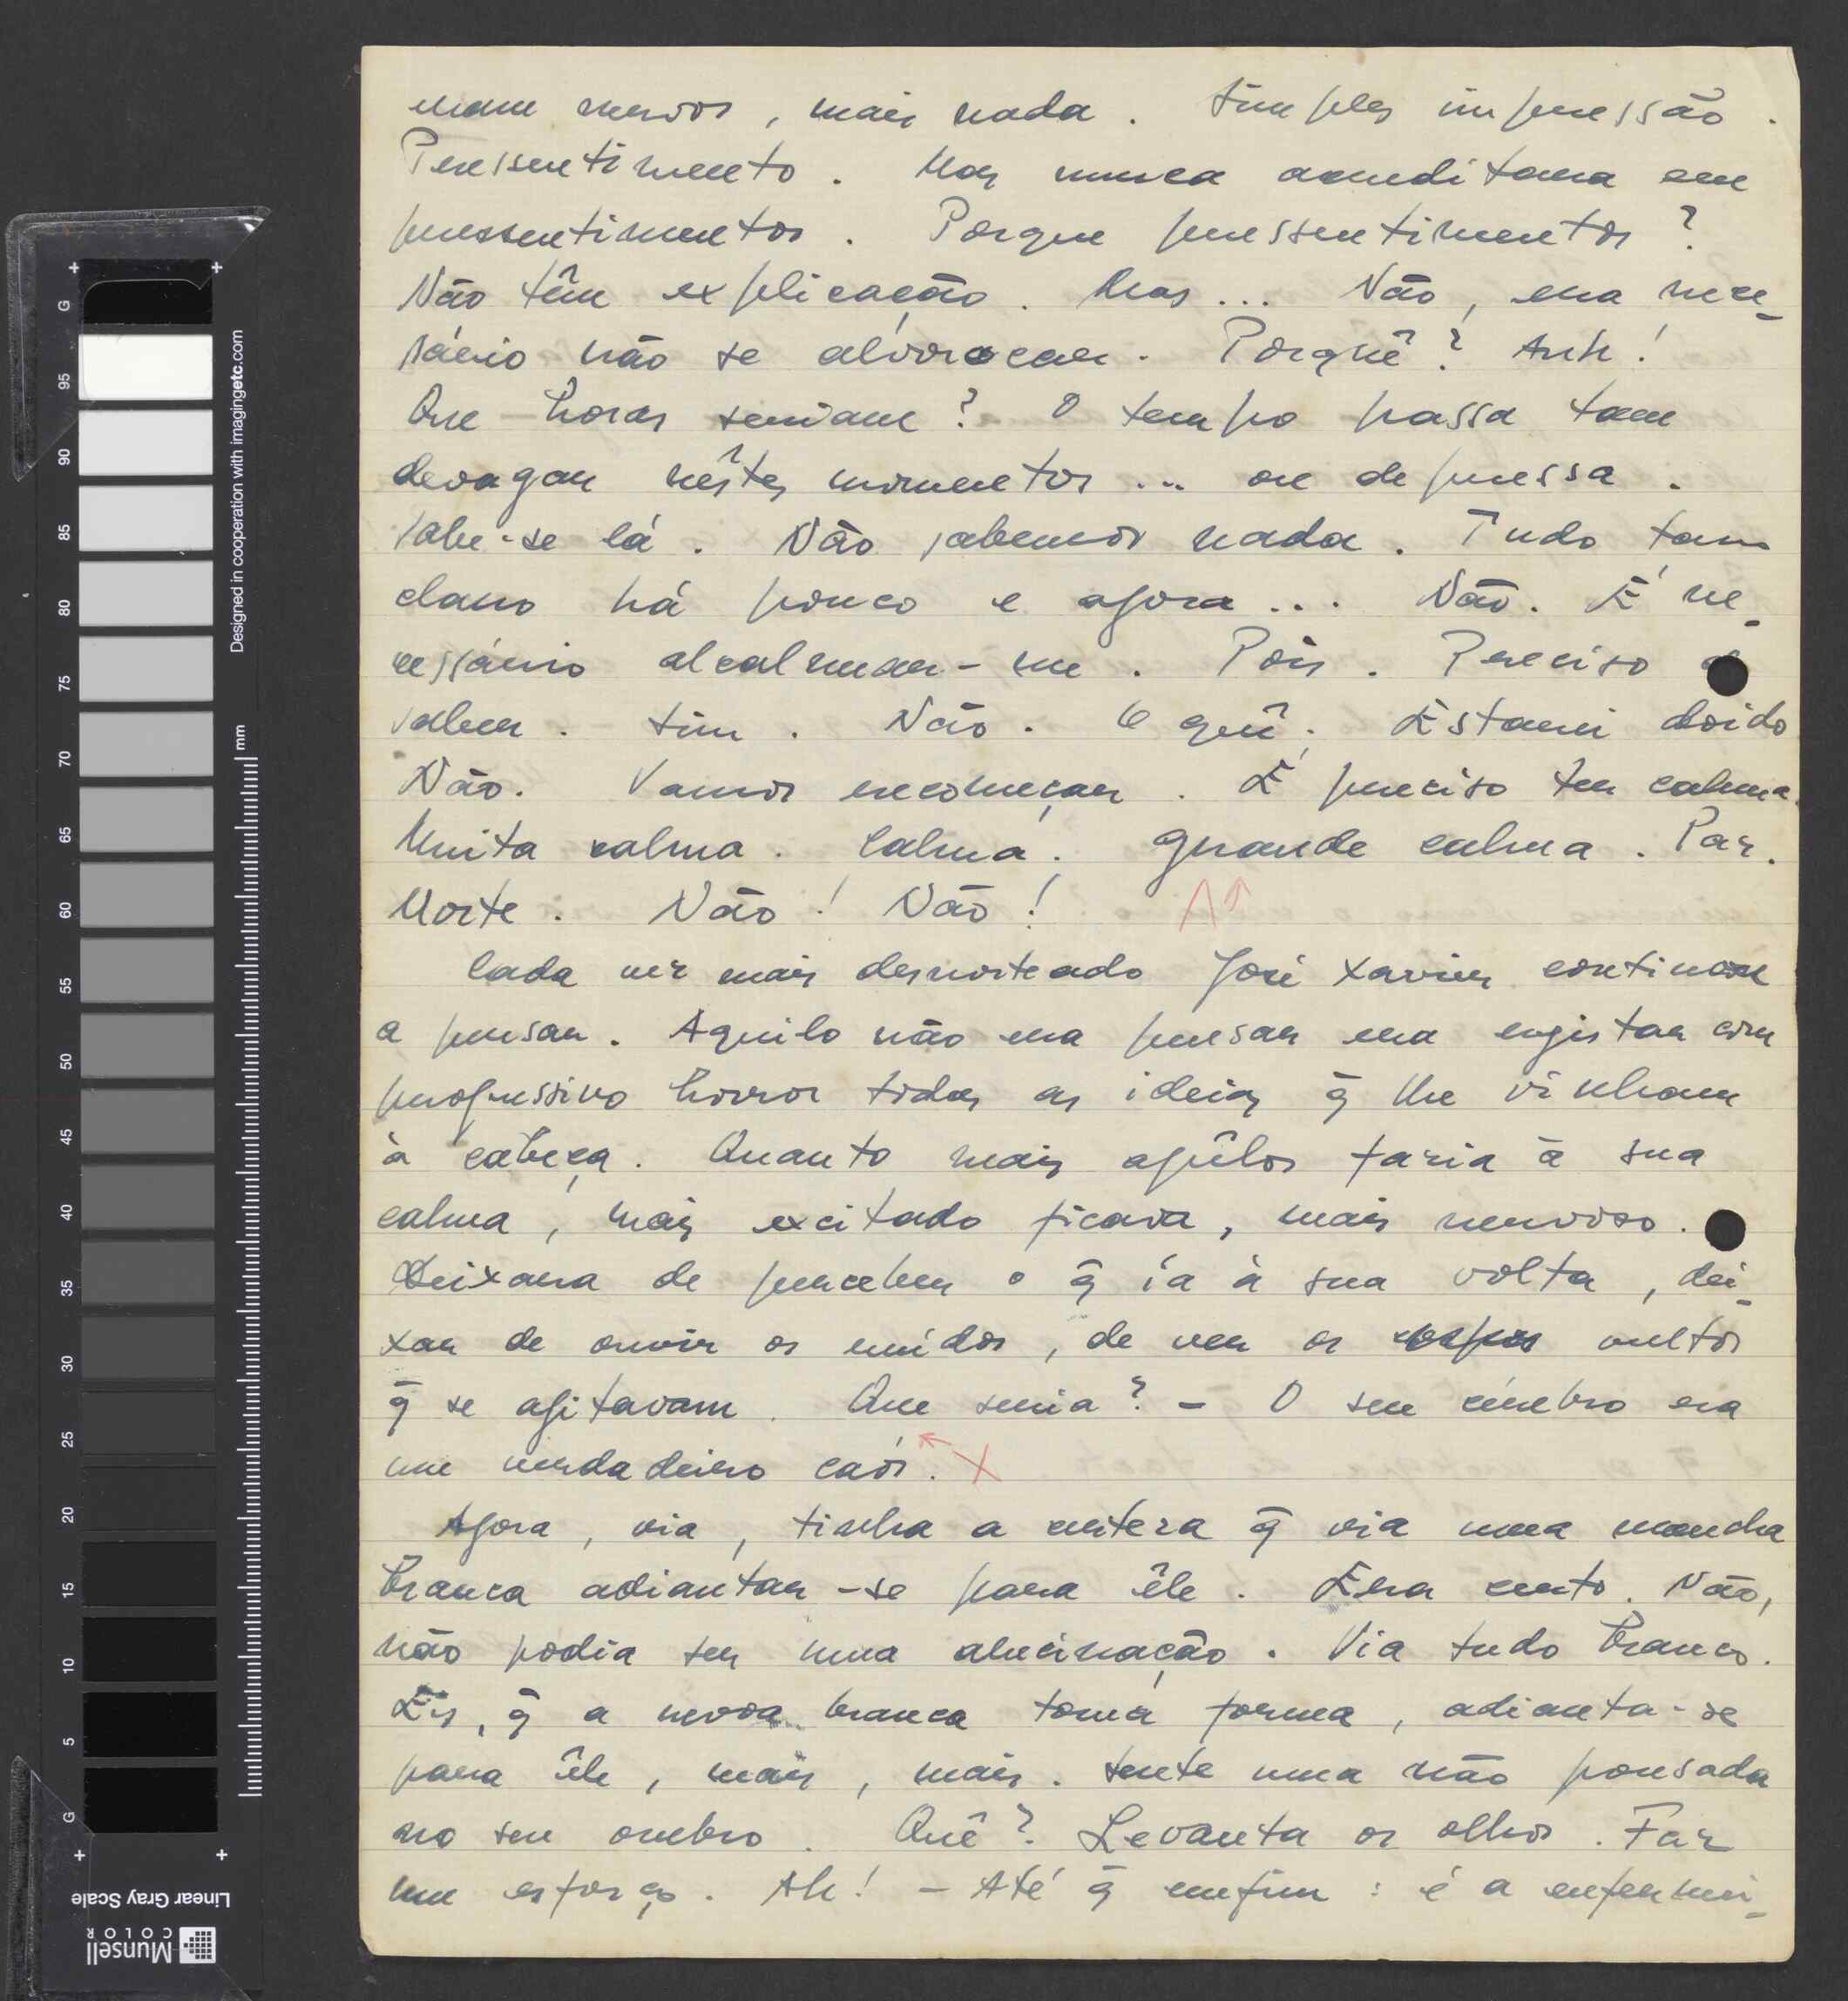 eram nervos, mais nada. Simples impressão.
Pressentimento. Mas nunca acreditara em
pressentimentos. Porque pressentimentos?
Não têm explicação. Mas... Não, era nece-
sário não se alvoroçar. Porquê? Anh!
Que horas seriam? O tempo passa tam
devagar nêstes momentos... ou depressa.
Sabe-se lá. Não sabemos nada. Tudo tam
claro há pouco e agora... Não. É ne-
cessário alcalmar-me. Pois. Preciso
saber. Sim. Não. O quê. Estarei doido
Não. Vamos recomeçar. É preciso ter calma.
Muita calma. Calma. Grande calma. Paz.
Morte. Não! Não!
Cada vez mais desnorteado José Xavier continou
a pensar. Aquilo não era pensar era registar com
progressivo horror todas as ideias q̃ lhe vinham
à cabeça. Quanto mais apêlos fazia à sua
calma, mais excitado ficava, mais nervoso.
Deixara de perceber o q̃ ía à sua volta, dei-
xar de ouvir os ruídos, de ver os vultos
q̃ se agitavam. Que seria? - O seu cérebro era
um verdadeiro caós. X
Agora, via, tinha a certeza q̃ via uma mancha
branca adiantar-se para êle. Era certo. Não,
não podia ser uma alucinação. Via tudo branco.
Eis, q̃ a nevoa branca toma forma, adianta-se
para êle, mais, mais. Sente uma mão pousada
no seu ombro. Quê? Levanta os olhos. Faz
um esforço. Ah! - Até q̃ emfim: é a enfermei-
Designed in cooperation with imagingetc.com
mm
G 95 90 85 80 75 70 65 60 55 50 45 40 35 30 25 20 15 10 5 G
Linear Gray Scale
Munsell
COLOR